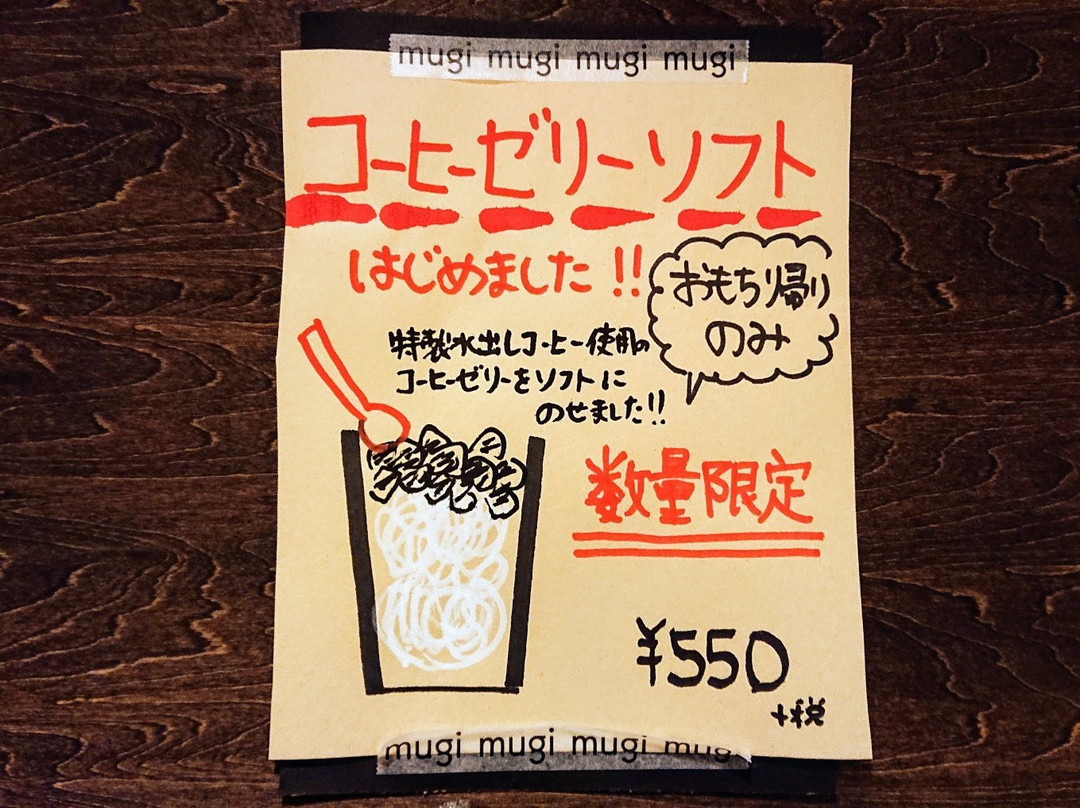 mugi mugi mugi mugi
コーヒーゼリーソフト
はじめました!!
おもち帰り
のみ
特製水出しコーヒー使用の
コーヒーゼリーをソフトに
のせました!!
数量限定
¥550
+税
mugi mugi mugi mugi